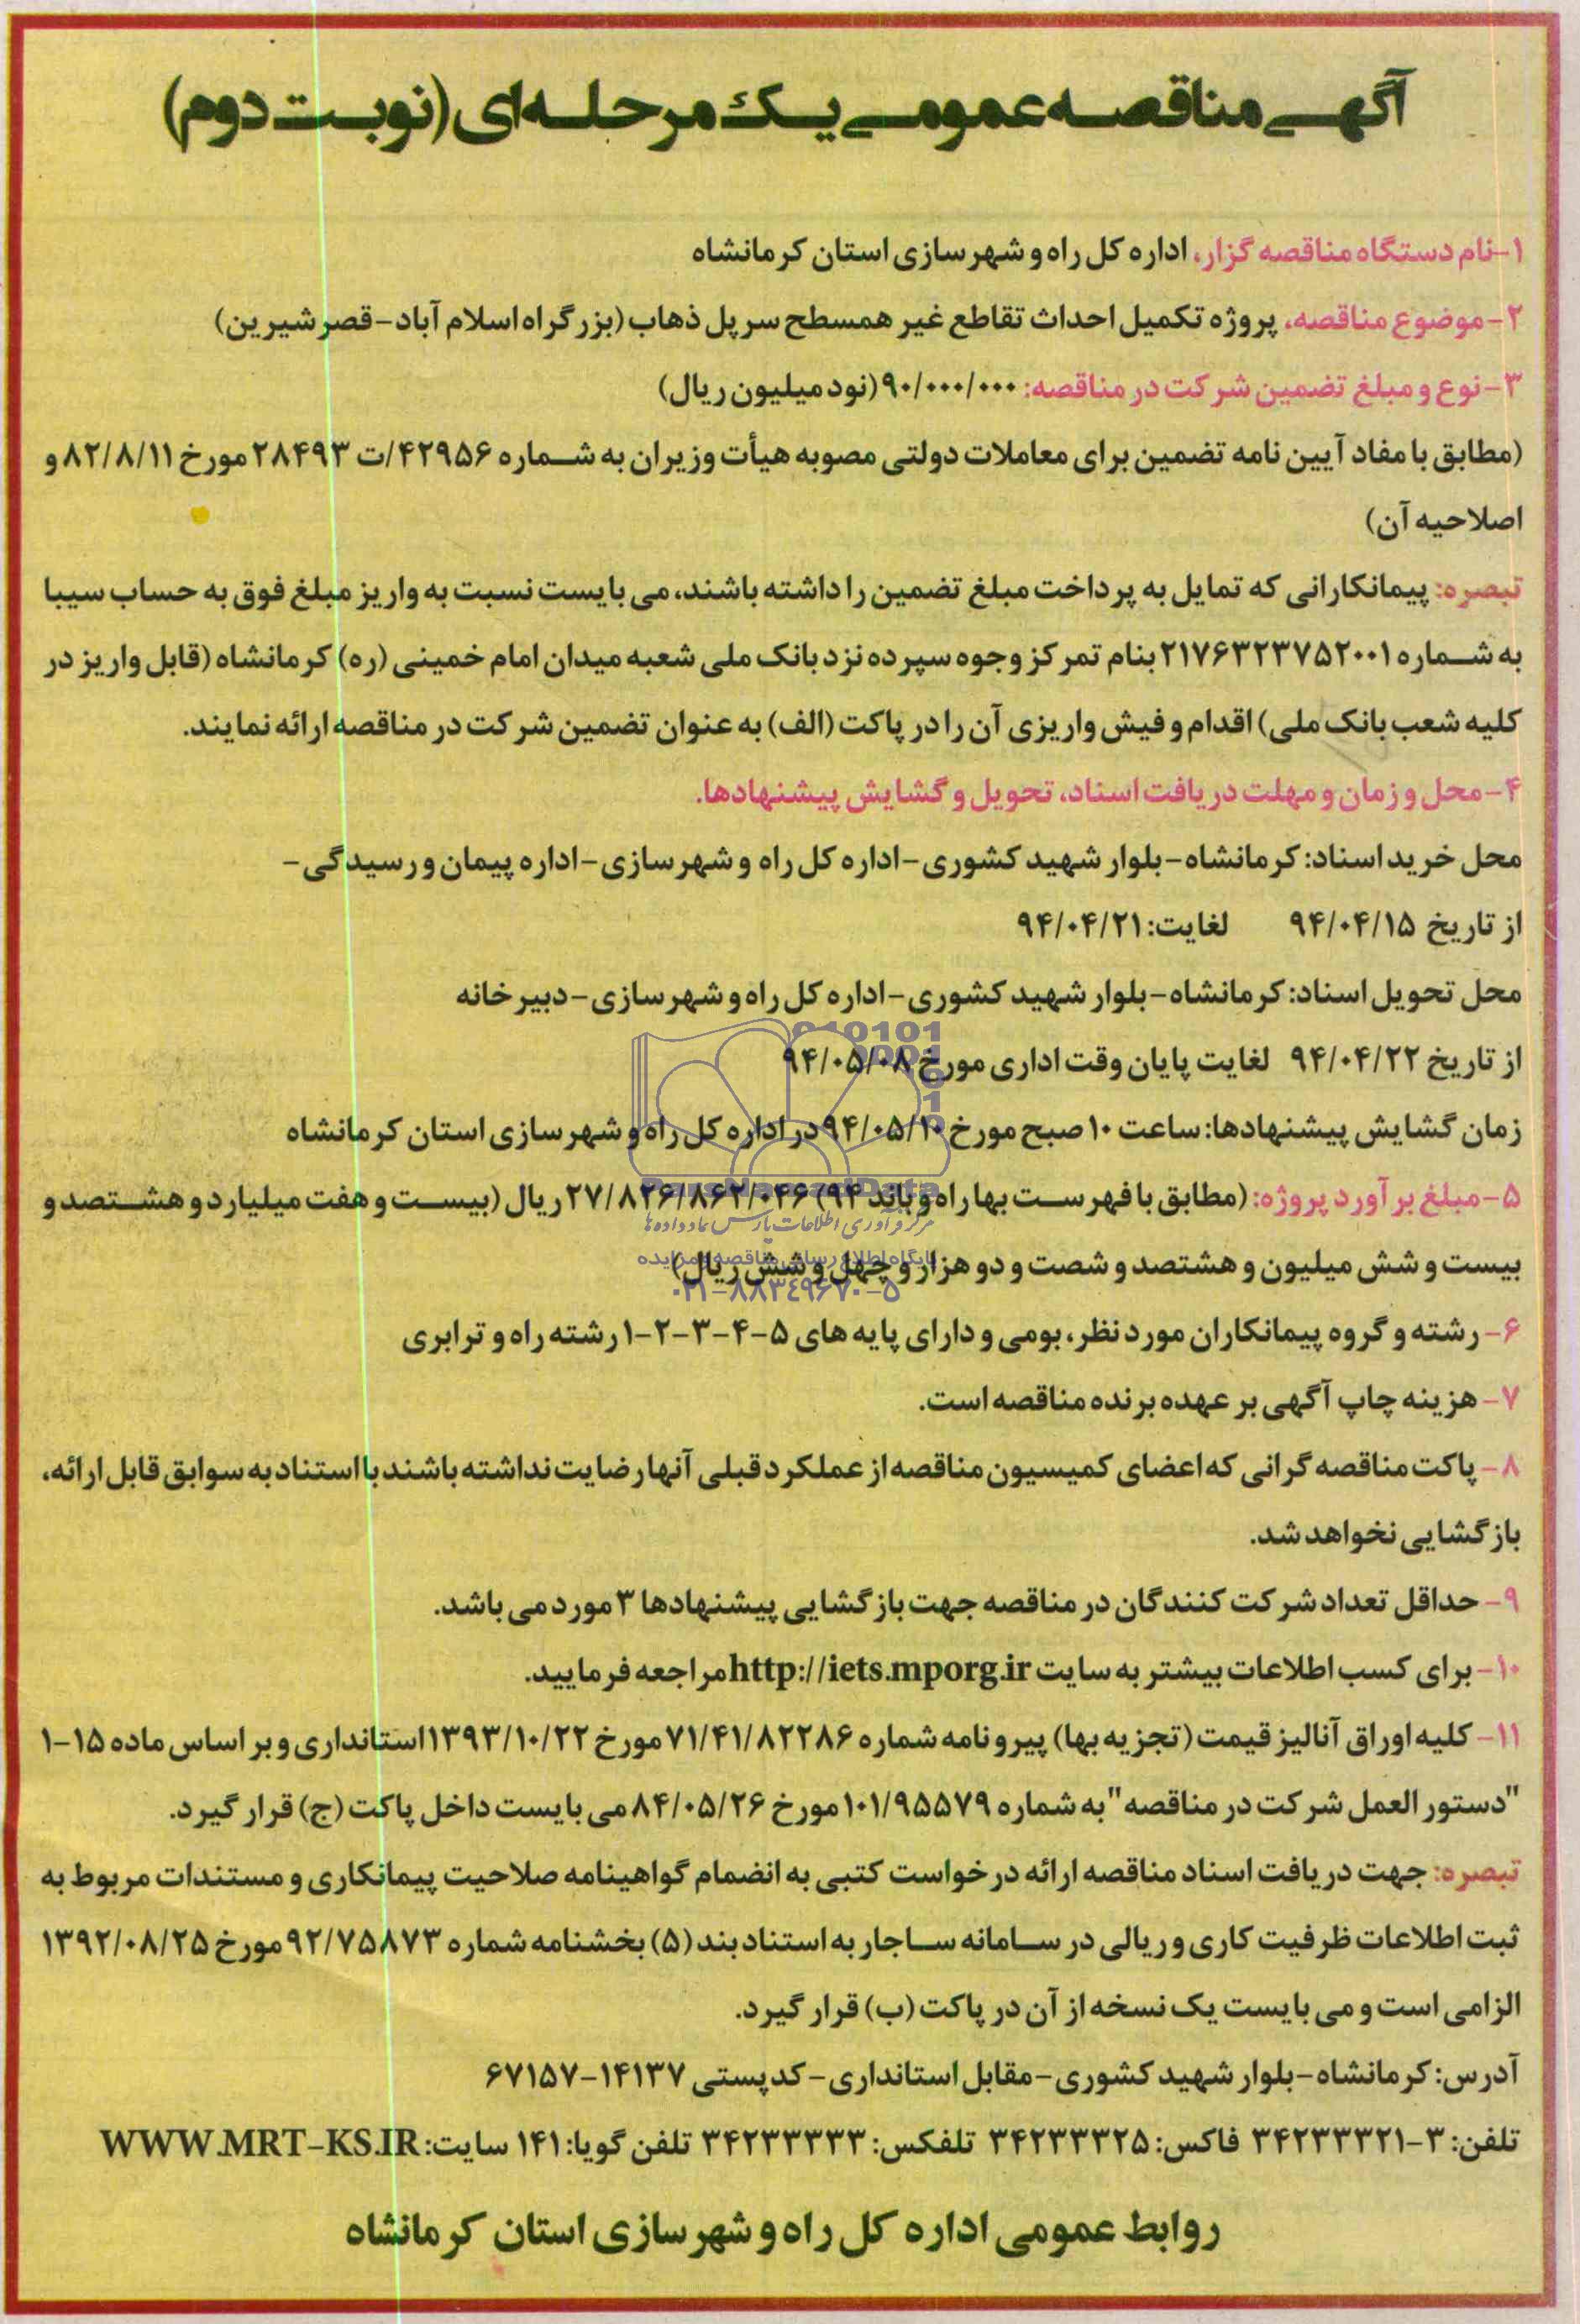 آگهی مناقصه عمومی یک مرحله‌ای (نوبت دوم)
۱-نام دستگاه مناقصه گزار، اداره کل راه و شهرسازی استان کرمانشاه
۲-موضوع مناقصه، پروژه تکمیل احداث تقاطع غیر همسطح سرپل ذهاب (بزرگراه اسلام آباد-قصرشیرین)
۳-نوع و مبلغ تضمین شرکت در مناقصه: ۹۰/۰۰۰/۰۰۰ (نود میلیون ریال)
(مطابق با مفاد آیین نامه تضمین برای معاملات دولتی مصوبه هیأت وزیران به شماره ۴۲۹۵۶/ت ۲۸۴۹۳ مورخ ۸۲/۸/۱۱ و
اصلاحیه آن)
تبصره: پیمانکارانی که تمایل به پرداخت مبلغ تضمین را داشته باشند، می بایست نسبت به واریز مبلغ فوق به حساب سیبا
به شماره ۲۱۷۶۳۲۳۷۵۲۰۰۱ بنام تمرکز وجوه سپرده نزد بانک ملی شعبه میدان امام خمینی (ره) کرمانشاه (قابل واریز در
کلیه شعب بانک ملی) اقدام و فیش واریزی آن را در پاکت (الف) به عنوان تضمین شرکت در مناقصه ارائه نمایند.
۴-محل و زمان و مهلت دریافت اسناد، تحویل و گشایش پیشنهادها.
محل خرید اسناد: کرمانشاه-بلوار شهید کشوری-اداره کل راه و شهرسازی-اداره پیمان و رسیدگی-
از تاریخ ۹۴/۰۴/۱۵ لغایت: ۹۴/۰۴/۲۱
محل تحویل اسناد: کرمانشاه-بلوار شهید کشوری-اداره کل راه و شهرسازی-دبیرخانه
از تاریخ ۹۴/۰۴/۲۲ لغایت پایان وقت اداری مورخ ۹۴/۰۵/۰۸
زمان گشایش پیشنهادها: ساعت ۱۰ صبح مورخ ۹۴/۰۵/۱۰ در اداره کل راه و شهرسازی استان کرمانشاه
۵-مبلغ برآورد پروژه: (مطابق با فهرست بها راه و باند ۹۴) ۲۷/۸۲۶/۸۶۲/۰۴۶ ریال (بیست و هفت میلیارد و هشتصد و
بیست و شش میلیون و هشتصد و شصت و دو هزار و چهل و شش ریال)
ParsNamadData
مرکز فرآوری اطلاعات پارس نماد داده‌ها
پایگاه اطلاع رسانی مناقصه و مزایده
۰۲۱-۸۸۳۴۹۶۷۰-۵
۶- رشته و گروه پیمانکاران مورد نظر، بومی و دارای پایه های ۵-۴-۳-۲-۱ رشته راه و ترابری
۷- هزینه چاپ آگهی بر عهده برنده مناقصه است.
۸- پاکت مناقصه گرانی که اعضای کمیسیون مناقصه از عملکرد قبلی آنها رضایت نداشته باشند با استناد به سوابق قابل ارائه،
بازگشایی نخواهد شد.
۹- حداقل تعداد شرکت کنندگان در مناقصه جهت بازگشایی پیشنهادها ۳ مورد می باشد.
۱۰- برای کسب اطلاعات بیشتر به سایت http://iets.mporg.ir مراجعه فرمایید.
۱۱- کلیه اوراق آنالیز قیمت (تجزیه بها) پیرو نامه شماره ۷۱/۴۱/۸۲۲۸۶ مورخ ۱۳۹۳/۱۰/۲۲ استانداری و بر اساس ماده ۱۵-۱
"دستور العمل شرکت در مناقصه" به شماره ۱۰۱/۹۵۵۷۹ مورخ ۸۴/۰۵/۲۶ می بایست داخل پاکت (ج) قرار گیرد.
تبصره: جهت دریافت اسناد مناقصه ارائه درخواست کتبی به انضمام گواهینامه صلاحیت پیمانکاری و مستندات مربوط به
ثبت اطلاعات ظرفیت کاری و ریالی در سامانه ساجار به استناد بند (۵) بخشنامه شماره ۹۲/۷۵۸۷۳ مورخ ۱۳۹۲/۰۸/۲۵
الزامی است و می بایست یک نسخه از آن در پاکت (ب) قرار گیرد.
آدرس: کرمانشاه-بلوار شهید کشوری-مقابل استانداری-کدپستی ۱۴۱۳۷-۶۷۱۵۷
تلفن: ۳-۳۴۲۳۳۳۲۱ فاکس: ۳۴۲۳۳۳۲۵ تلفکس: ۳۴۲۳۳۳۳۳ تلفن گویا: ۱۴۱ سایت: WWW.MRT-KS.IR
روابط عمومی اداره کل راه و شهرسازی استان کرمانشاه